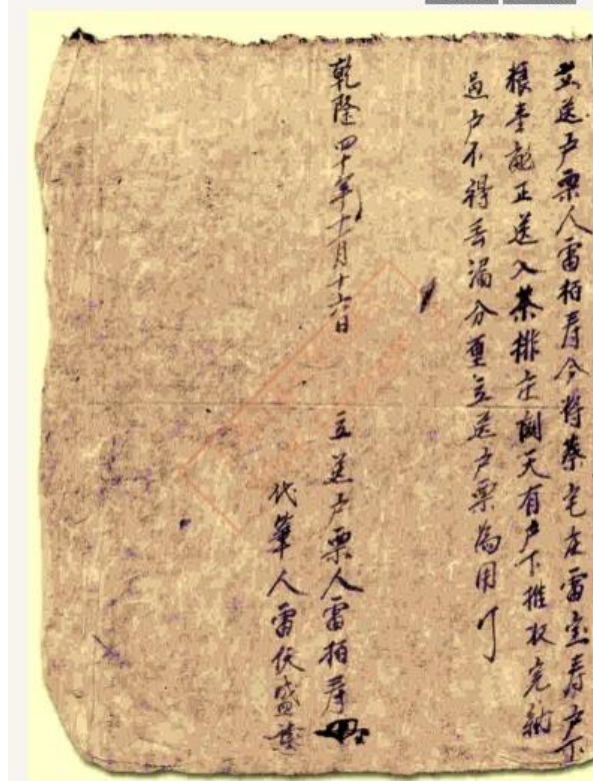 立送户票人雷栢寿今将蔡宅庄雷宝寿户下
粮壹畝正送入茶排庄闕天有户下推收完納
過户不得丢漏分厘立送户票為用
乾隆四十年十一月十六日
立送户票人雷栢寿
代筆人雷伏盛